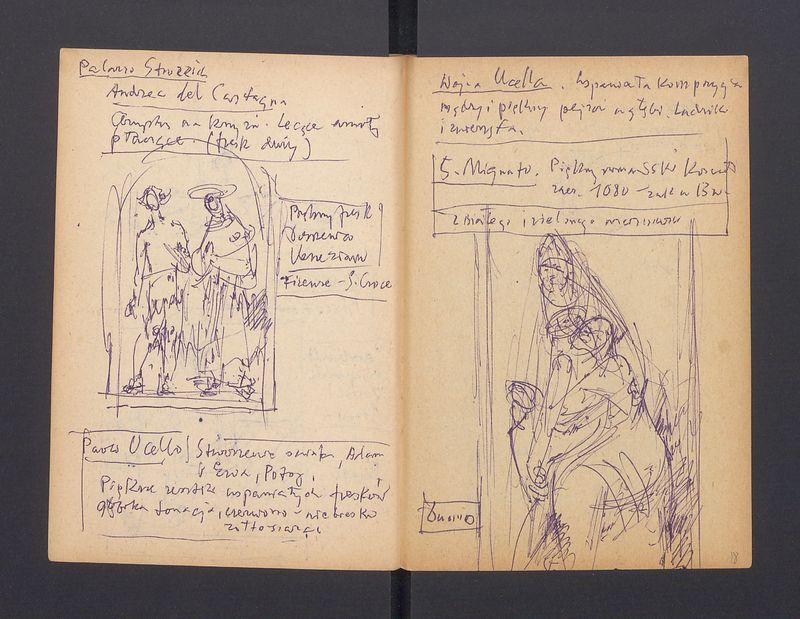 Palazzo Strozzich
Andrea del Castagna
na koniu. Lecące anioły
płaczące. (fresk duży)
Piękny fresk
Domenico
Veneziano
Firenze - S. Croce
Paolo Ucello Stworzenie świata, Adam
i Ewa, Potop.
Piękne wnętrze wspaniałych fresków
głęboka tonacja, czerwono - niebiesko
Wojna Ucella. Wspaniała kompozycja
mądry i piękny pejzaż w głębi. Ludziki
i zwierzęta.
S. Migniato. Piękny romański Kościół
1080 - w 13 w.
z białego i zielonego marmuru
Duomo
18